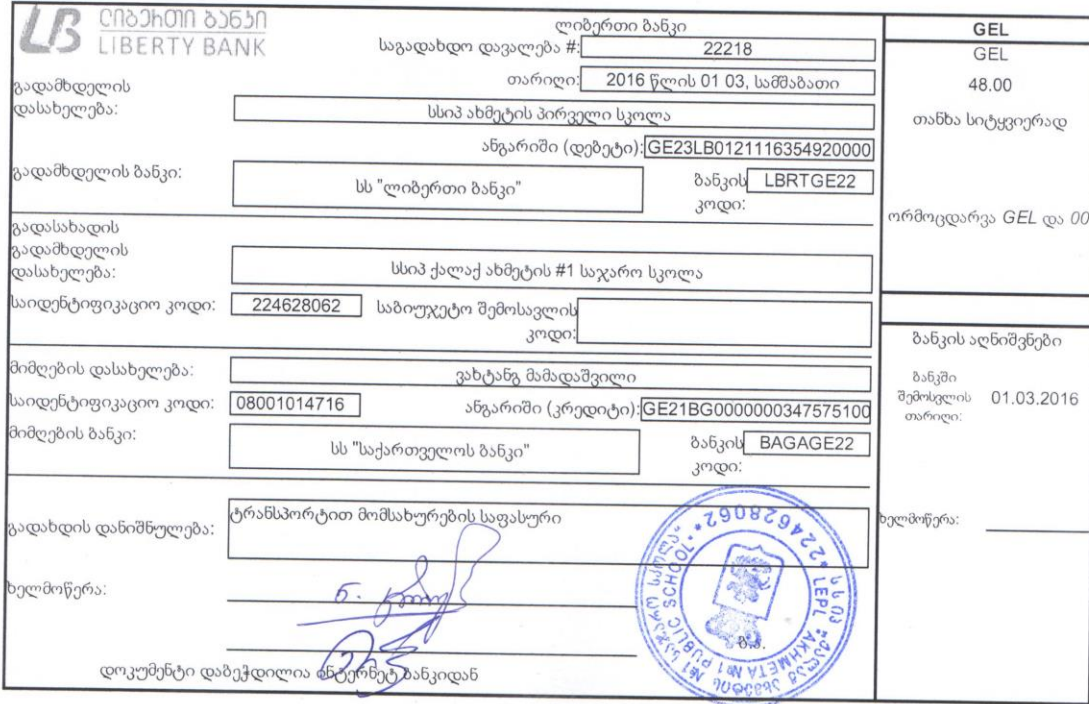 ლიბერთი ბანკი
LIBERTY BANK
ლიბერთი ბანკი
საგადახდო დავალება #: 22218
თარიღი: 2016 წლის 01 03, სამშაბათი
გადამხდელის
დასახელება: სსიპ ახმეტის პირველი სკოლა
ანგარიში (დებეტი): GE23LB0121116354920000
გადამხდელის ბანკი: სს "ლიბერთი ბანკი" ბანკის LBRTGE22
კოდი:
გადასახადის
გადამხდელის
დასახელება: სსიპ ქალაქ ახმეტის #1 საჯარო სკოლა
საიდენტიფიკაციო კოდი: 224628062 საბიუჯეტო შემოსავლის
კოდი:
მიმღების დასახელება: ვახტანგ მამადაშვილი
საიდენტიფიკაციო კოდი: 08001014716 ანგარიში (კრედიტი): GE21BG0000000347575100
მიმღების ბანკი: სს "საქართველოს ბანკი" ბანკის BAGAGE22
კოდი:
გადახდის დანიშნულება: ტრანსპორტით მომსახურების საფასური
ხელმოწერა:
ბ.ა.
დოკუმენტი დაბეჭდილია ინტერნეტ ბანკიდან
GEL
GEL
48.00
თანხა სიტყვიერად
ორმოცდარვა GEL და 00
ბანკის აღნიშვნები
ბანკში
შემოსვლის 01.03.2016
თარიღი:
ხელმოწერა:
სსიპ ქალაქ ახმეტის №1 საჯარო სკოლა
*224628062*
LEPL AKHMETA №1 PUBLIC SCHOOL